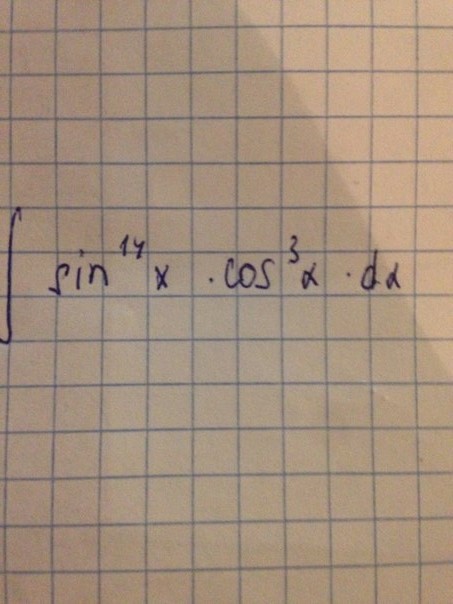 ∫ sin¹⁴x · cos³x · dx